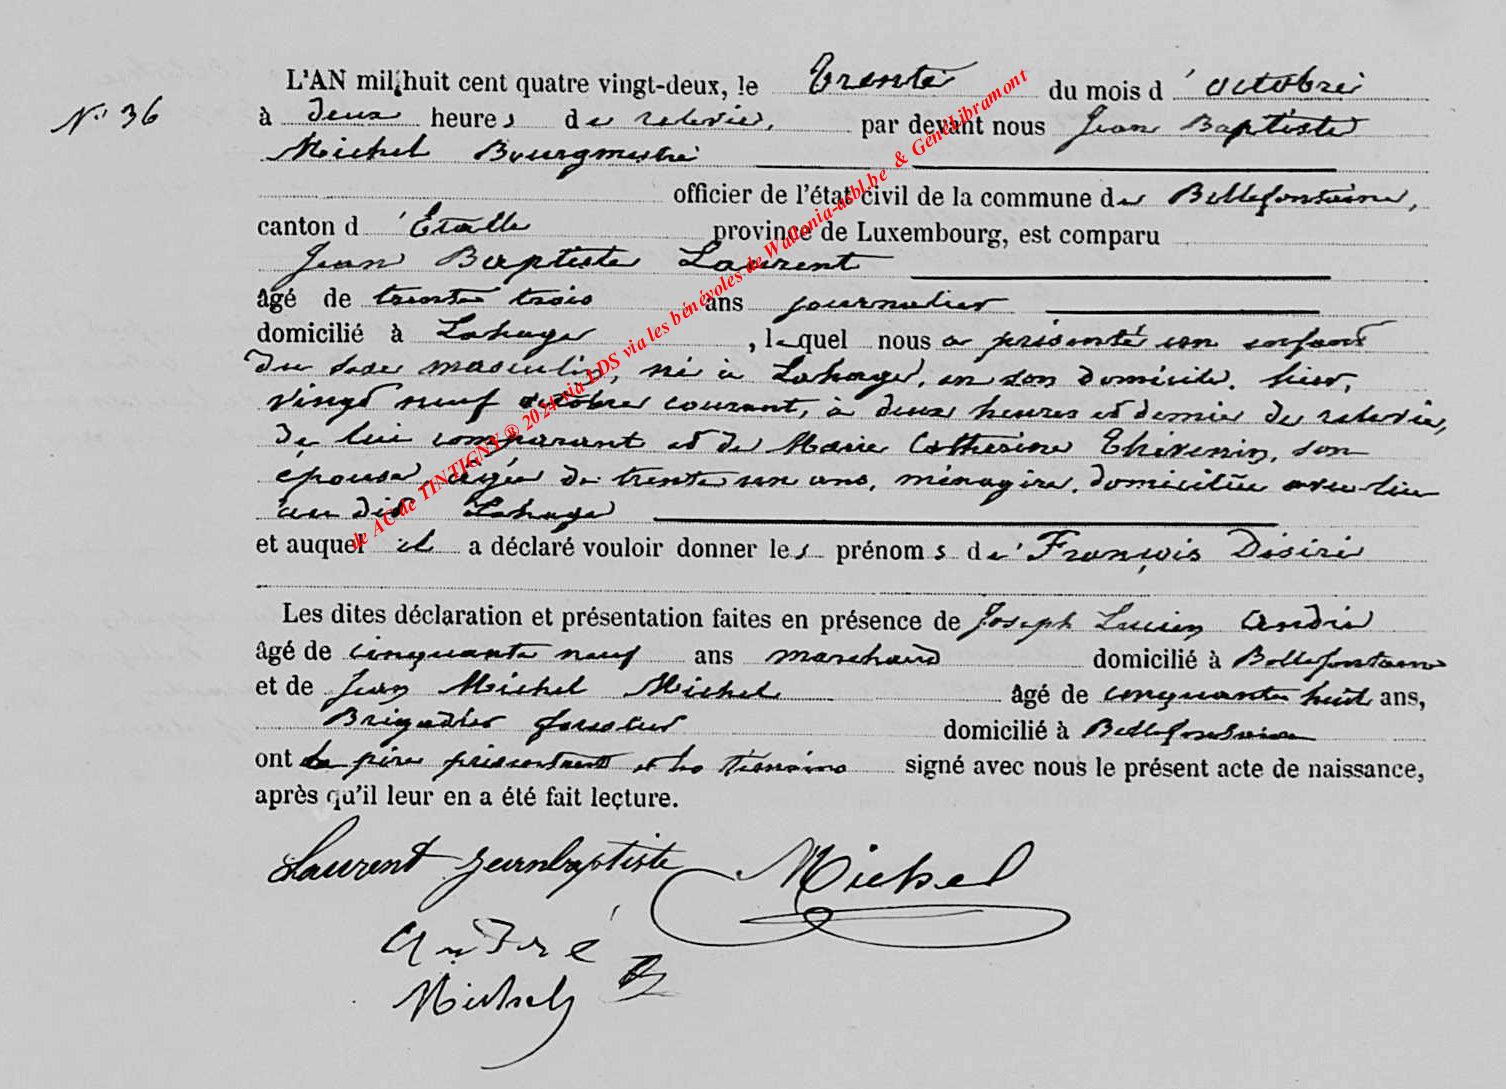 N° 36
L'AN mil huit cent quatre vingt-deux, le trente du mois d'octobre
à deux heures de relevée, par devant nous Jean Baptiste
Michel Bourgmestre
officier de l'état civil de la commune de Bellefontaine,
canton d'Etalle province de Luxembourg, est comparu
Jean Baptiste Laurent
âgé de trente trois ans journalier
domicilié à Lahage, lequel nous a présenté un enfant
du sexe masculin, né à Lahage, en son domicile, hier,
vingt neuf octobre courant, à deux heures et demie de relevée,
de lui comparant et de Marie Catherine Thirenin, son
épouse, agée de trente un ans, ménagère, domiciliée avec lui
au dit Lahage
et auquel il a déclaré vouloir donner les prénoms de François Désiré
Les dites déclaration et présentation faites en présence de Joseph Lucien André
âgé de cinquante neuf ans marchand domicilié à Bellefontaine
et de Jean Michel Michel âgé de cinquante huit ans,
Brigadier forestier domicilié à Bellefontaine
ont le père présentant et les témoins signé avec nous le présent acte de naissance,
après qu'il leur en a été fait lecture.
Laurent Jeanbaptiste Michel
André
Michel
de AC de TINTIGNY ® 2024 via LDS via les bénévoles de Wallonia-asbl.be & GénéLibramont